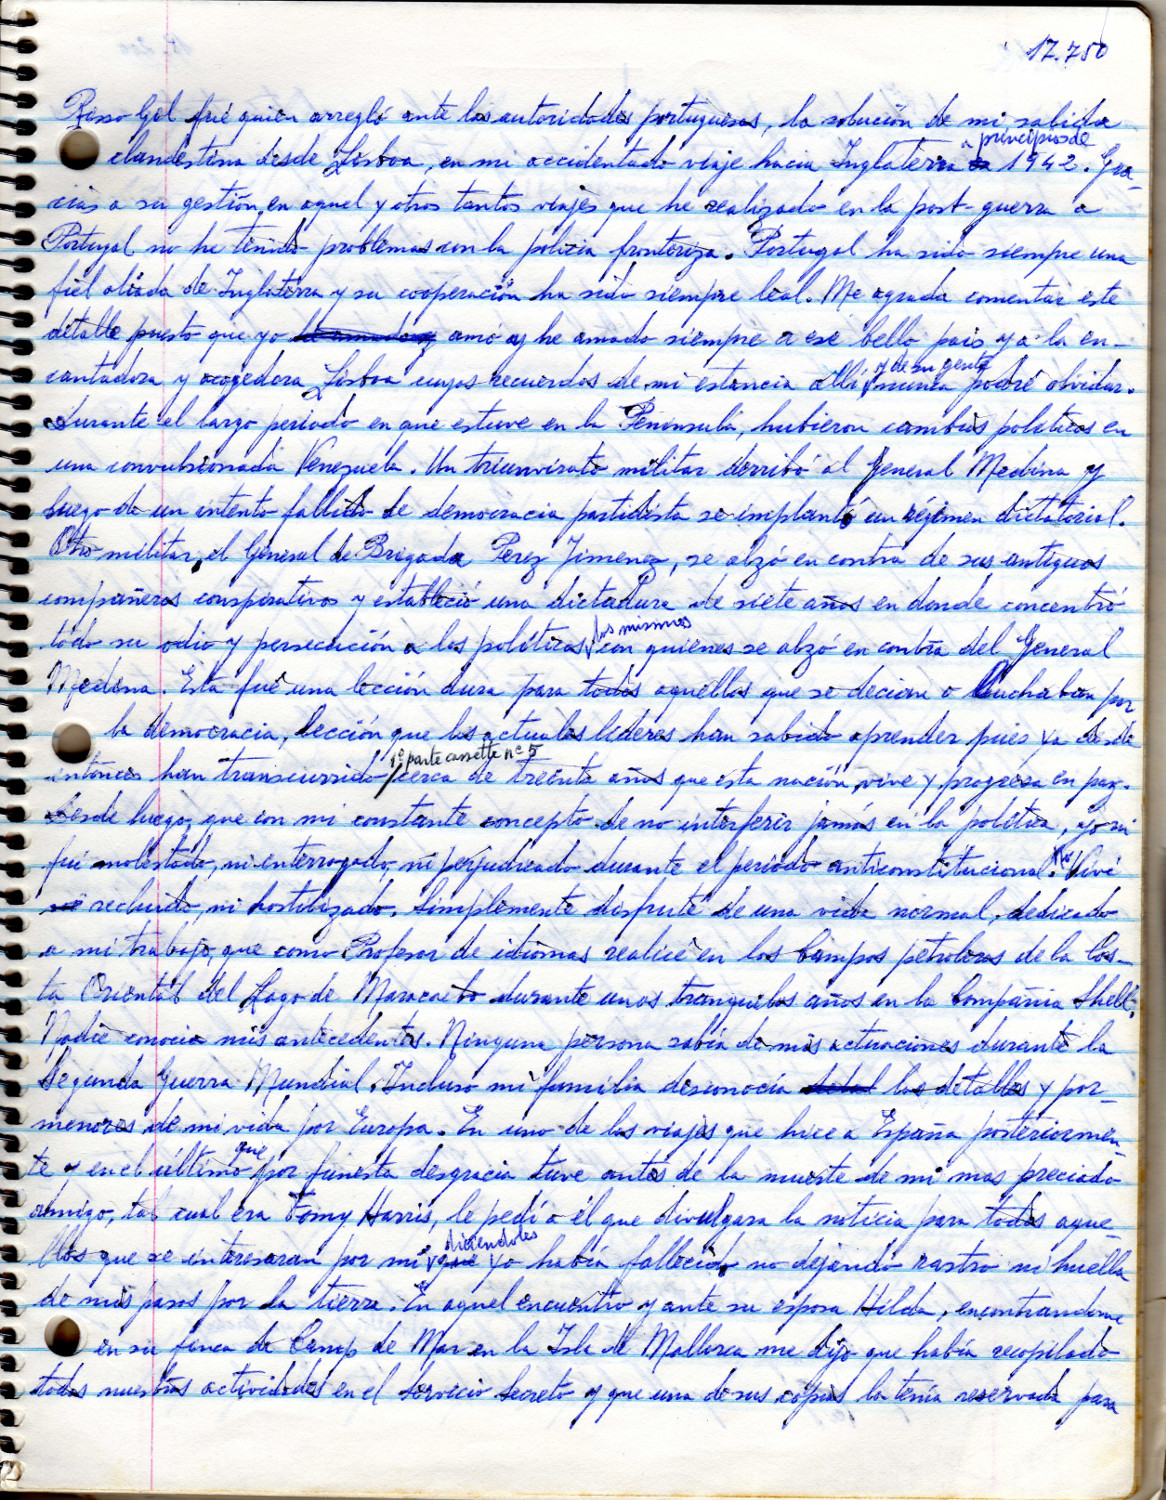 17.750
Risso Gil fué quien arregló ante las autoridades portuguesas, la solución de mi salida
clandestina desde Lisboa, en mi accidentado viaje hacia Inglaterra a principios de 1942. Gra-
cias a su gestión, en aquel y otros tantos viajes que he realizado en la post-guerra a
Portugal no he tenido problemas con la policia fronteriza. Portugal ha sido siempre una
fiel aliada de Inglaterra y su cooperación ha sido siempre leal. Me agrada comentar este
detalle puesto que yo amé y he amado siempre a ese bello pais y a la en-
cantadora y acogedora Lisboa cuyos recuerdos de mi estancia allí y de su gente nunca podré olvidar.
Durante el largo periodo en que estuve en la Peninsula, hubieron cambios politicos en
una convulsionada Venezuela. Un triunvirato militar derribó al General Medina y
luego de un intento fallido de democracia partidista se implantó un régimen dictatorial.
Otro militar, el General de Brigada Perez Jimenez, se alzó en contra de sus antiguos
compañeros conspirativos y estableció una dictadura de siete años en donde concentró
todo su odio y persecución a los políticos, los mismos con quienes se alzó en contra del General
Medina. Esta fué una lección dura para todos aquellos que se decian o luchaban por
la democracia, lección que los actuales lideres han sabido aprender pues ya desde
entonces han transcurrido 1ª parte cassette nº 5 cerca de treinta años que esta nación, vive y progresa en paz.
Desde luego, que con mi constante concepto de no interferir jamás en la política, yo ni
fui molestado, ni interrogado, ni perjudicado durante el periodo anticonstitucional. No viví
recluido, ni hostilizado. Simplemente disfruté de una vida normal, dedicado
a mi trabajo, que como Profesor de idiomas realicé en los Campos petroleros de la Cos-
ta Oriental del Lago de Maracaibo durante unos tranquilos años en la Compañia Shell.
Nadie conocia mis antecedentes. Ninguna persona sabía de mis actuaciones durante la
Segunda Guerra Mundial. Incluso mi familia desconocía los detalles y por-
menores de mi vida por Europa. En uno de los viajes que hice a España posteriormen-
te y en el último que por funesta desgracia tuve antes de la muerte de mi mas preciado
amigo, tal cual era Tomy Harris, le pedí a él que divulgara la noticia para todos aque-
llos que se interesaran por mi diciendoles yo había fallecido no dejando rastro ni huella
de mis pasos por la tierra. En aquel encuentro y ante su esposa Hilda, encontrandome
en su finca de Camp de Mar en la Isla de Mallorca me dijo que había recopilado
todas nuestras actividades en el Servicio Secreto y que una de sus copias la tenía reservada para